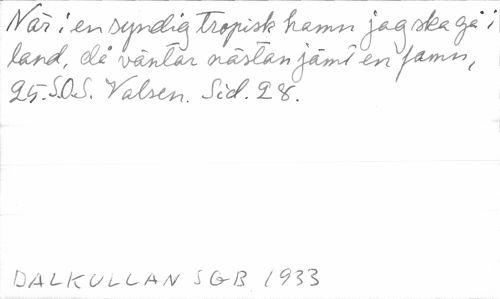 När i en syndig tropisk hamn jag ska gå i
land, då väntar nästan jämt en famn,
25. S.O.S. Valsen. Sid. 28.
DALKULLAN SGB 1933